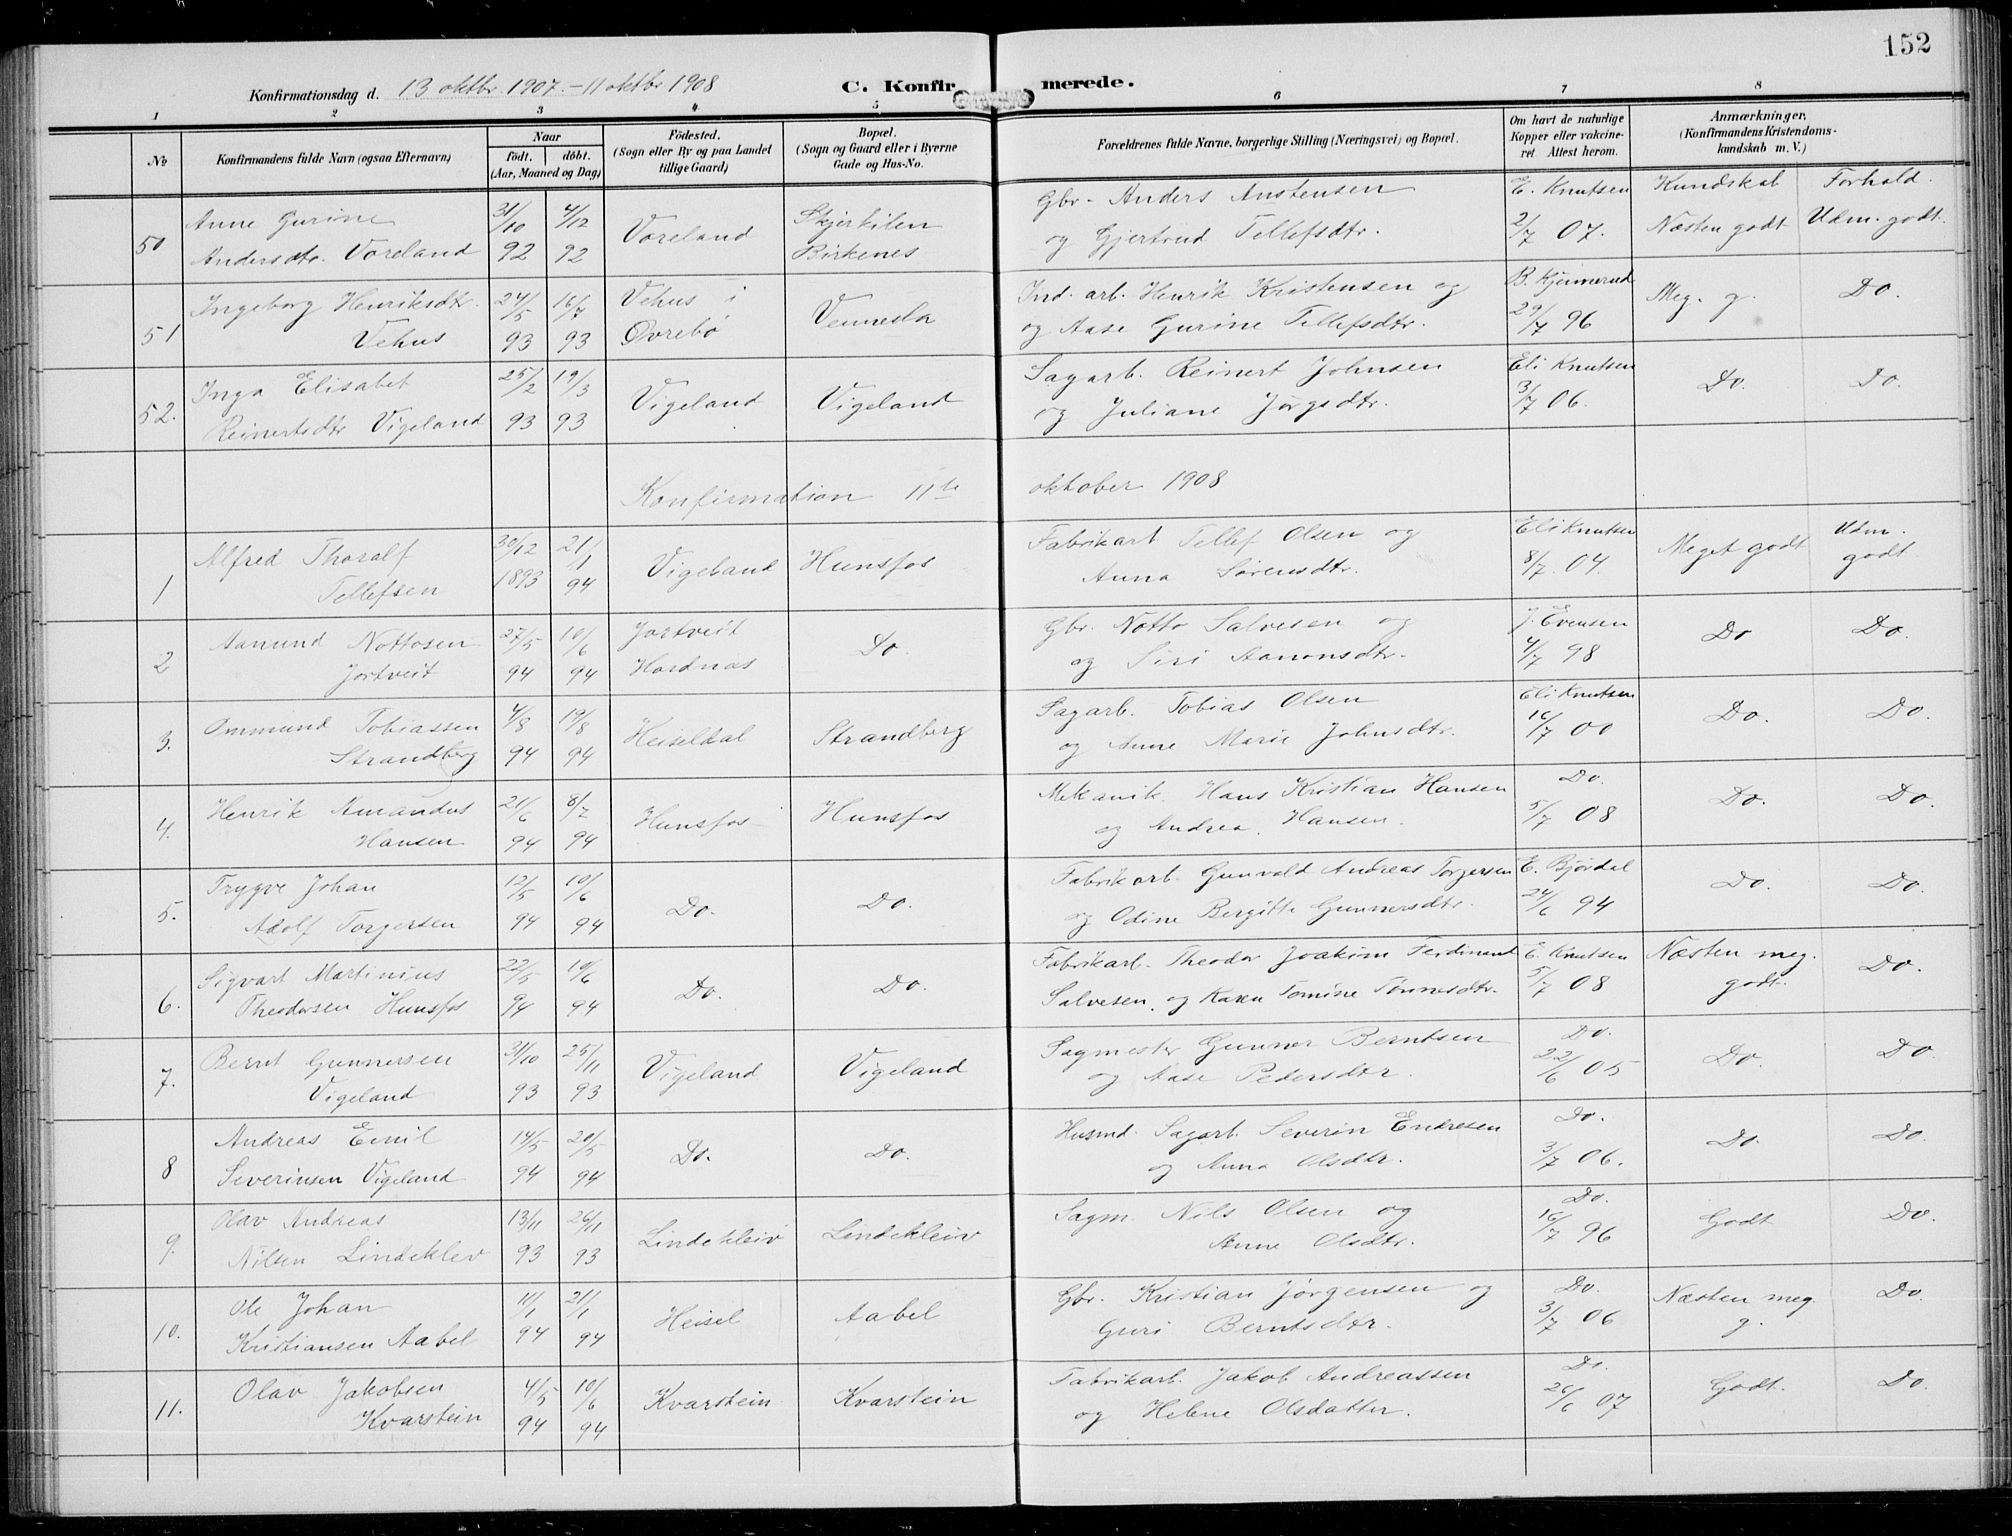 152
Konfirmationsdag d. 13 oktbr. 1907 - 11 oktbr 1908 C. Konfirmerede.
1 2 3 4 5 6 7 8
No
Konfirmandens fulde Navn (ogsaa Efternavn)
Naar
födt. döbt.
(Aar, Maaned og Dag)
Födested.
(Sogn eller By og paa Landet
tillige Gaard)
Bopæl.
(Sogn og Gaard eller i Byerne
Gade og Hus-No.
Forældrenes fulde Navne, borgerlige Stilling (Næringsvei) og Bopæl.
Om havt de naturlige
Kopper eller vakcine-
ret Attest herom.
Anmærkninger,
(Konfirmandens Kristendoms-
kundskab m. V.)
Anne Gurine 31/10 4/12 Voreland Skjerkilen Gbr. Anders Anstensen E. Knutsen Kundskab Forhold.
50 Andersdtr. Voreland 92 92 Birkenes og Gjertrud Tellefsdtr. 2/7 07. Næsten godt Udm. godt.
Ingeborg Henriksdtr. 24/5 16/7 Vehus i Vennesla Ind. arb. Henrik Kristensen og B. Kjennerud Meg. g. Do.
51 Vehus 93 93 Øvrebö og Aase Gurine Tellefsdtr. 29/7 96
Inga Elisabet 25/2 19/3 Vigeland Vigeland Sagarb. Reinert Johnsen Eli Knutsen Do. Do.
52. Reinertsdtr Vigeland 93 93 og Juliane Jørgsdtr. 3/7 06.
Konfirmation 11te oktober 1908
Alfred Thoralf 30/12 21/1 Vigeland Hunsfos Fabrikarb. Tellef Olsen og Eli Knutsen Meget godt Udm.
1 Tellefsen 1893 94 Anna Sørensdtr. 8/7. 04. godt.
Aanund Nottosen 27/5 10/6 Jortveit Do. Gbr. Notto Salvesen og J. Evensen Do Do.
2 Jortveit 94 94 Hordnas og Siri Aanonsdtr. 4/7 98
Ommund Tobiassen 4/8 19/8 Heiseldal Strandberg Sagarb. Tobias Olsen Eli Knutsen Do. Do.
3. Strandberg 94 94 og Anne Marie Johnsdtr. 16/7 00
Henrik Amandus 21/6 8/7 Hunsfos Hunsfos Mekanik. Hans Kristian Hansen Do. Do. Do.
4. Hansen 94 94 og Andrea Hansen. 5/7 08
Trygve Johan 12/5 10/6 Do. Do. Fabrikarb. Gunvald Andreas Torgersen E. Bjørdal Do. Do.
5. Adolf Torgersen 94 94 og Odine Bergitte Gunnersdtr. 24/6 94
Sigvart Martinius 22/5 10/6 Do. Do. Fabrikarb. Theodor Joakim Ferdinand E. Knutsen Næsten meg. Do.
6. Theodorsen Hunsfos 94 94 Salvesen, og Karen Tomine Tønnesdtr. 5/7 08 godt.
Bernt Gunnersen 31/10 25/11 Vigeland Vigeland Sagmester Gunner Berntsen Do. Do. Do.
7. Vigeland 93 93 og Aase Pedersdtr. 22/6 05
Andreas Emil 14/5 20/5 Do. Do. Husmd. Sagarb. Severin Endresen Do. Do. Do.
8 Severinsen Vigeland 94 94 og Anna Olsdtr. 3/7 06.
Olav Andreas 13/11 26/11 Lindekleiv Lindekleiv Sagm. Nils Olsen og Do. Godt Do.
9. Nilsen Lindeklev 93 93 Anne Olsdtr. 16/7 96
Ole Johan 11/1 21/1 Heisel Aabel Gbr. Kristian Jørgensen og Do. Næsten meg. Do.
10. Kristiansen Aabel 94 94 Guri Berntsdtr. 3/7 06 g.
Olav Jakobsen 4/5 10/6 Kvarstein Kvarstein Fabrikarb. Jakob Andreassen Do. Godt. Do.
11. Kvarstein 94 94 og Helene Olsdatter. 26/6 07